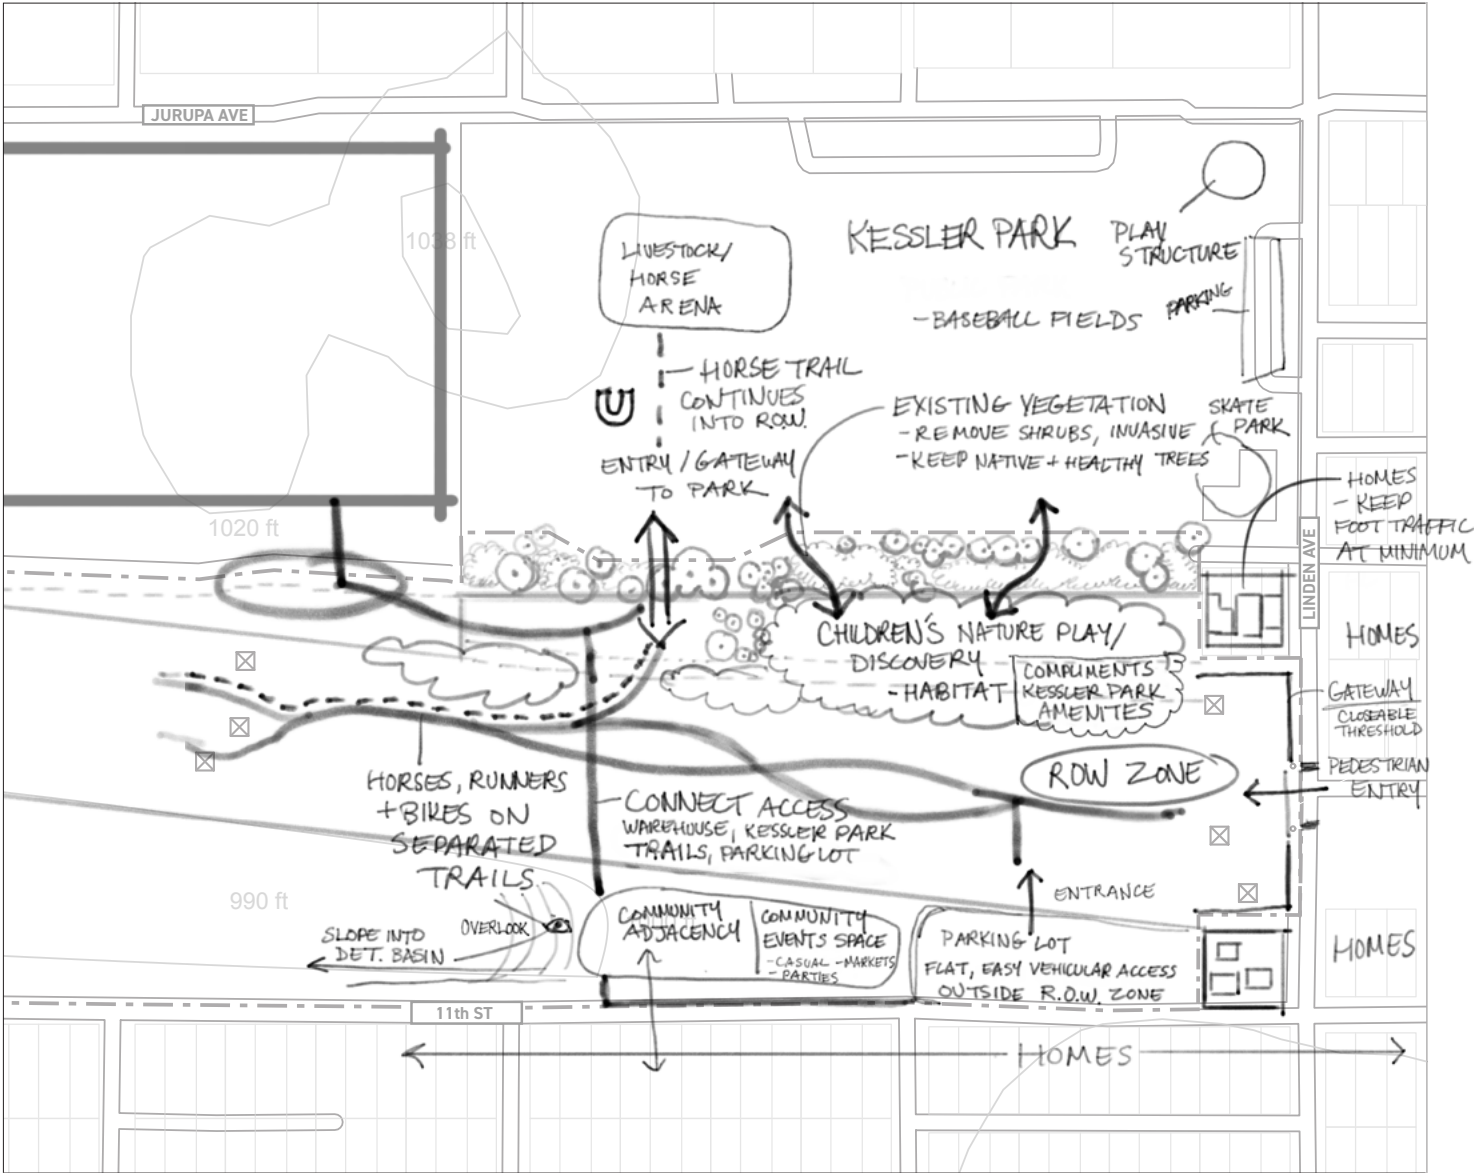 JURUPA AVE
1038 ft
LIVESTOCK/
HORSE
ARENA
KESSLER PARK
- BASEBALL FIELDS
PLAY
STRUCTURE
PARKING
- HORSE TRAIL
CONTINUES
INTO R.O.W.
ENTRY / GATEWAY
TO PARK
EXISTING VEGETATION
- REMOVE SHRUBS, INVASIVE
- KEEP NATIVE + HEALTHY TREES
SKATE
PARK
HOMES
- KEEP
FOOT TRAFFIC
AT MINIMUM
1020 ft
LINDEN AVE
HOMES
CHILDREN'S NATURE PLAY/
DISCOVERY
- HABITAT
COMPLIMENTS
KESSLER PARK
AMENITES
GATEWAY
CLOSEABLE
THRESHOLD
PEDESTRIAN
ENTRY
ROW ZONE
HORSES, RUNNERS
+ BIKES ON
SEPARATED
TRAILS
CONNECT ACCESS
WAREHOUSE, KESSLER PARK
TRAILS, PARKING LOT
ENTRANCE
990 ft
OVERLOOK
SLOPE INTO
DET. BASIN
COMMUNITY
ADJACENCY
COMMUNITY
EVENTS SPACE
- CASUAL - MARKETS
- PARTIES
PARKING LOT
FLAT, EASY VEHICULAR ACCESS
OUTSIDE R.O.W. ZONE
HOMES
11th ST
HOMES